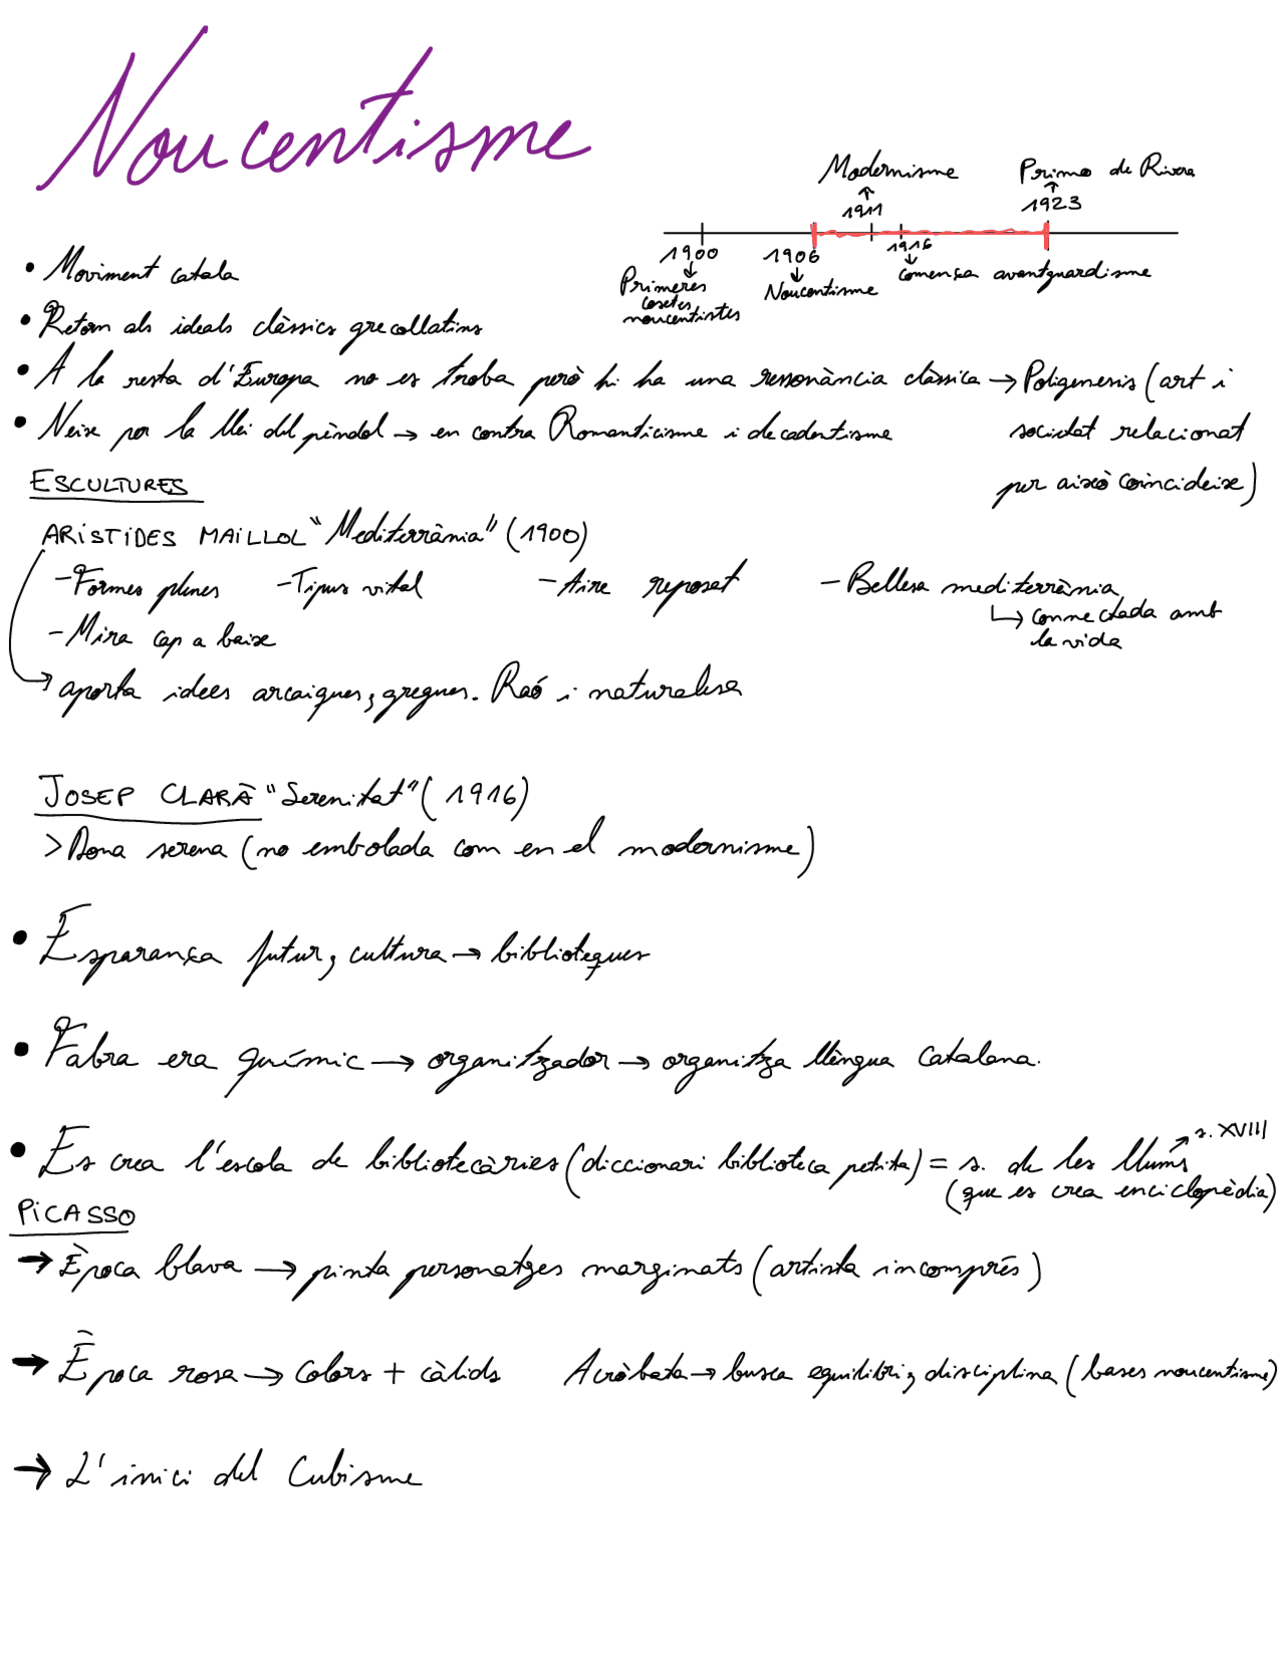 Noucentisme
Modernisme
Primo de Rivera
1911
1923
1900
1906
1916
Primeres
cosetes
noucentistes
Noucentisme
comença avantguardisme
• Moviment català
• Retorn als ideals clàssics grecollatins
• A la resta d'Europa no es troba però hi ha una ressonància clàssica → Poligenesis (art i
societat relacionat
per això coincideixe)
• Neixe per la llei del pèndol → en contra Romanticisme i decadentisme
ESCULTURES
ARISTIDES MAILLOL "Mediterrània" (1900)
- Formes plenes - Tipus vital - Aire reposat - Bellesa mediterrània
↳ connectada amb
la vida
- Mira cap a baixe
→ aporta idees arcaiques, gregues. Raó i naturalesa
JOSEP CLARÀ "Serenitat" (1916)
> Dona serena (no embolada com en el modernisme)
• Esperança futur, cultura → biblioteques
• Fabra era químic → organitzador → organitza llengua catalana.
• Es crea l'escola de bibliotecàries (diccionari biblioteca petita) = s. de les llums → s. XVIII
(que es crea enciclopèdia)
PICASSO
→ Època blava → pinta personatges marginats (artista incomprés)
→ Època rosa → Colors + càlids Acròbata → busca equilibri, disciplina (bases noucentisme)
→ L'inici del Cubisme